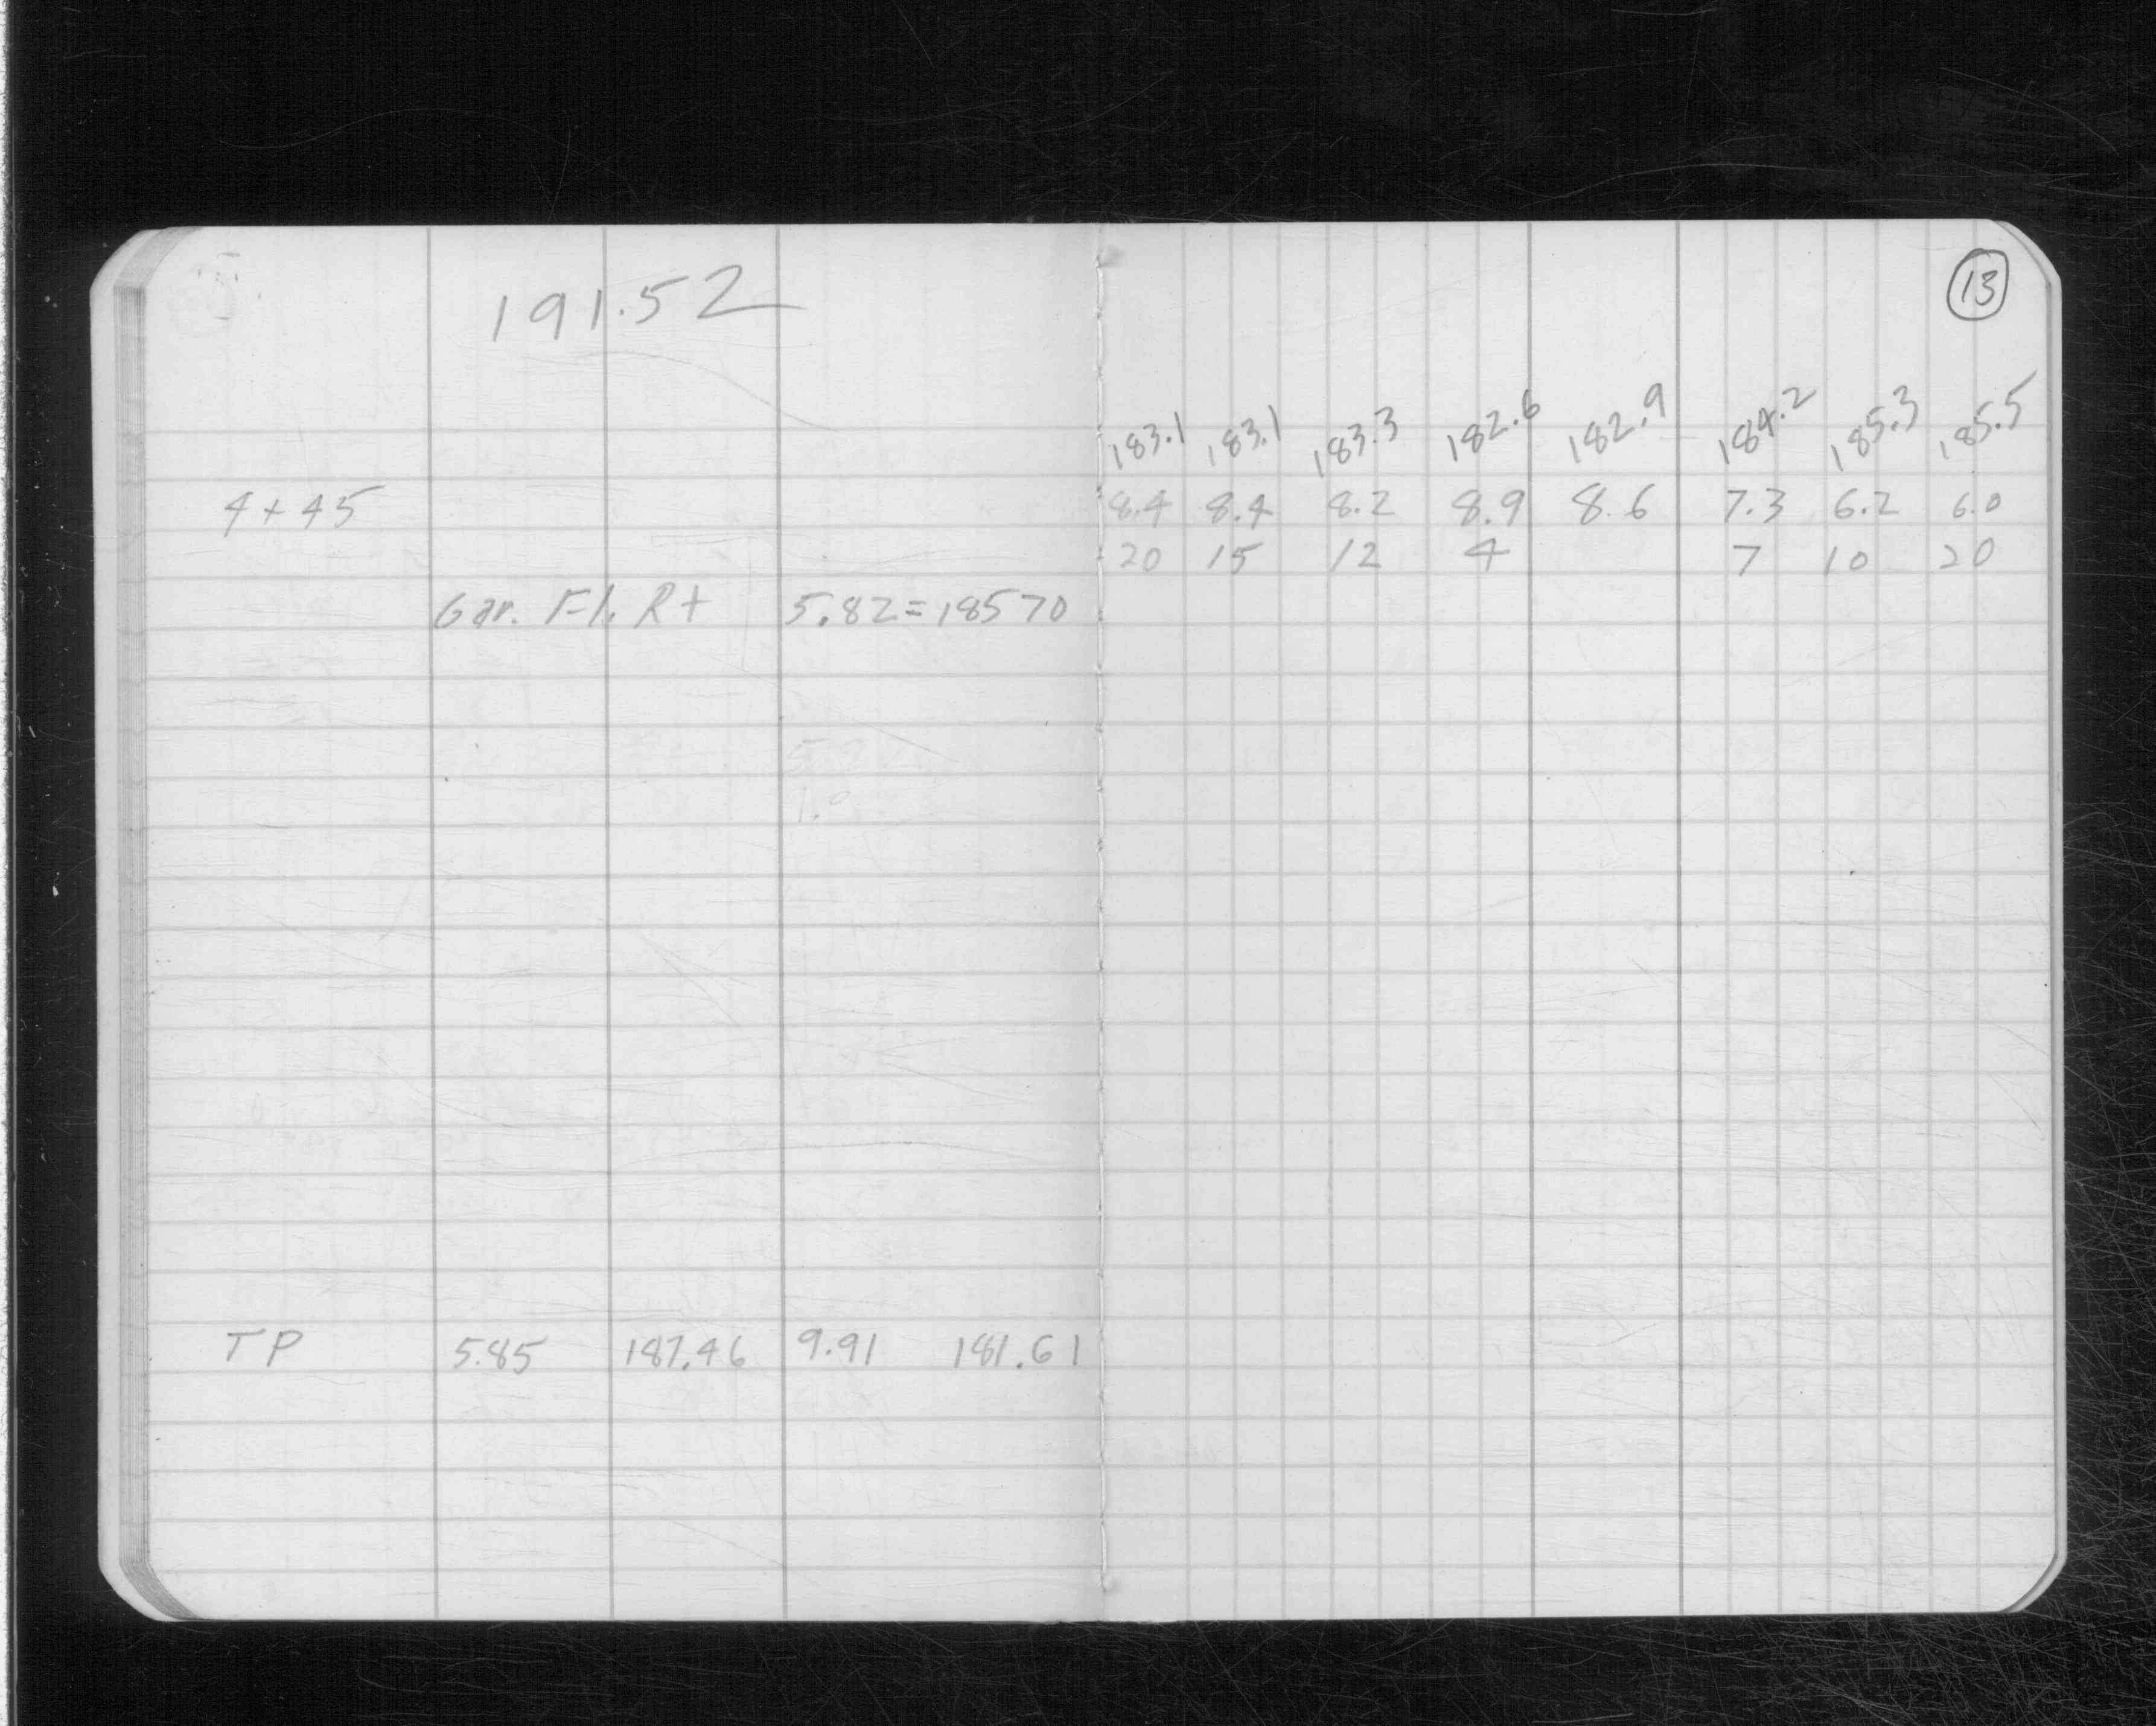 191.52
13
183.1 183.1 183.3 182.6 182.9 184.2 185.3 185.5
4+45 8.4 8.4 8.2 8.9 8.6 7.3 6.2 6.0
20 15 12 4 7 10 20
Gar. Fl. Rt 5.82=18570
TP 5.85 187.46 9.91 181.61